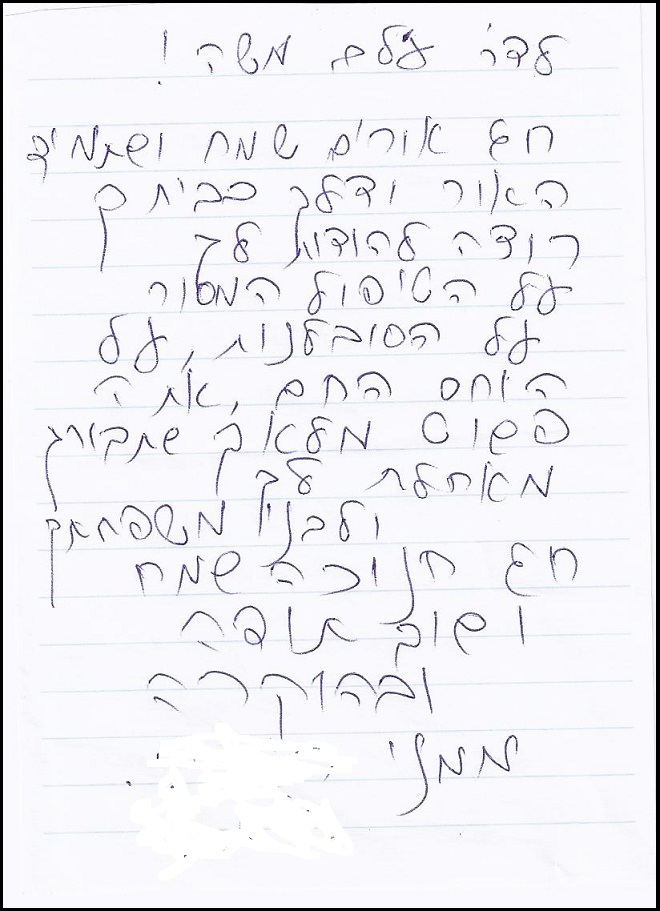 לדר' עלם משה !
חג אורים שמח ושתמיד
האור ידלק בביתך
רוצה להודות לך
על הטיפול המסור
על הסובלנות, על
היחס החם, אתה
פשוט מלאך שתבורך
מאחלת לך
ולבני משפחתך
חג חנוכה שמח
ושוב תודה
ובהוקרה
ממני